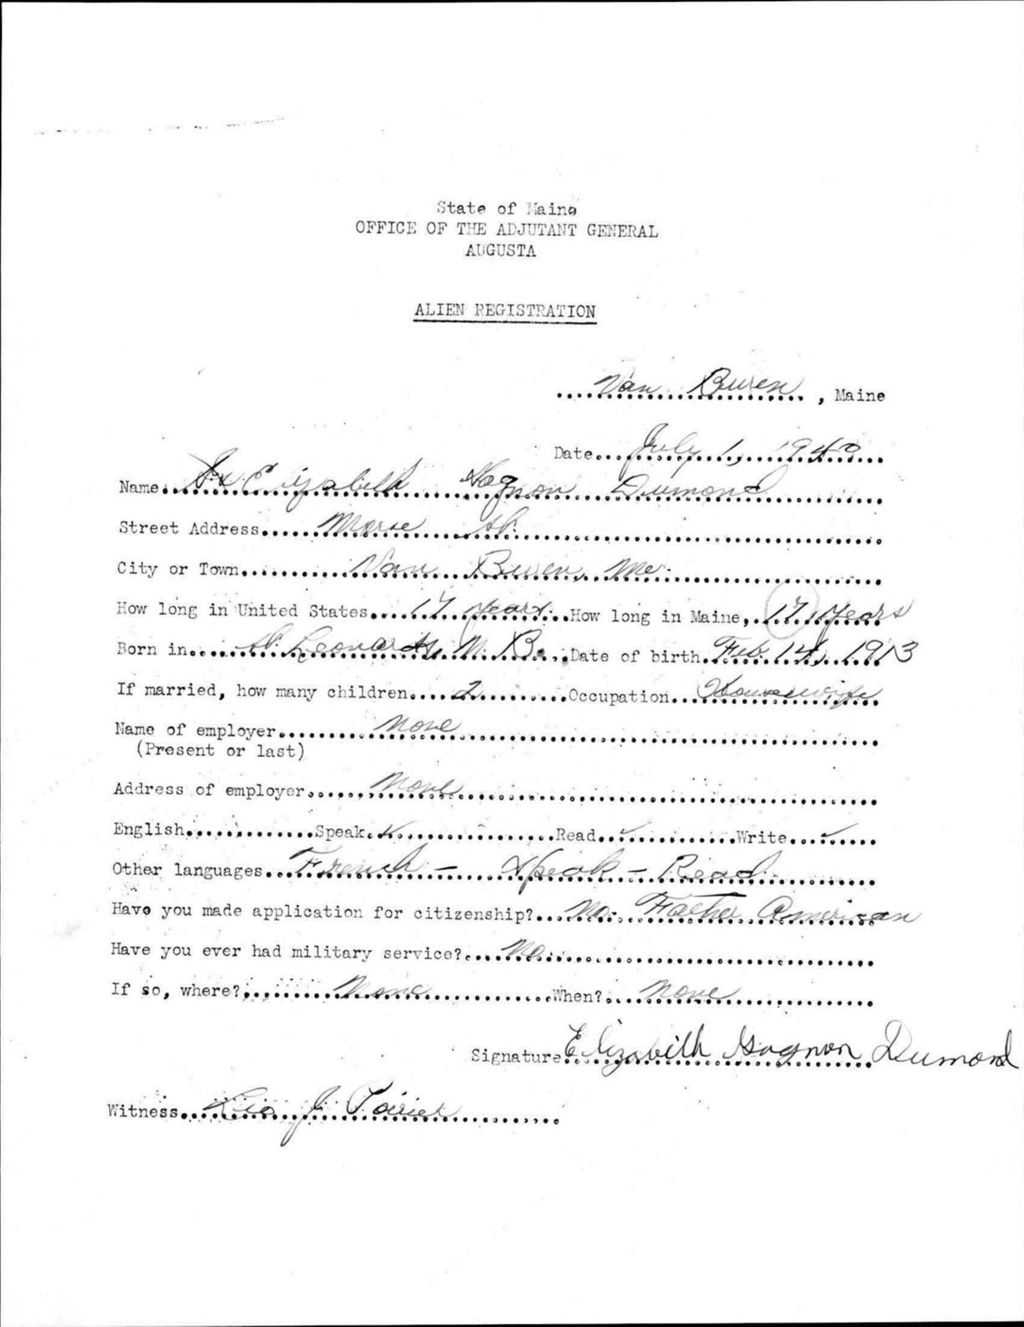 State of Maine
OFFICE OF THE ADJUTANT GENERAL
AUGUSTA
ALIEN REGISTRATION
Van Buren, Maine
Date July 1, 1940
Name Elizabeth Gagnon Dumond
Street Address Main St.
City or Town Van Buren, Me.
How long in United States 17 years How long in Maine, 17 years
Born in St. Leonards, N. B. Date of birth Feb. 14, 1913
If married, how many children 2 Occupation Housewife
Name of employer None
(Present or last)
Address of employer None
English Speak ✓ Read ✓ Write ✓
Other languages French - Speak - Read
Have you made application for citizenship? No. Father American
Have you ever had military service? No
If so, where? None When? None
Signature Elizabeth Gagnon Dumond
Witness Leo J. Poirier